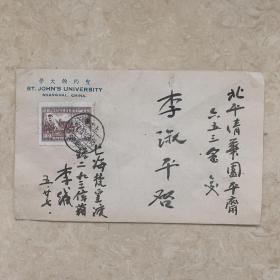 學大翰約聖
ST. JOHN'S UNIVERSITY
SHANGHAI, CHINA.
北平清華園平齋
六五三室交
李淑平啓
上海梵皇渡
路二九三信箱
李緘
五.廿七.